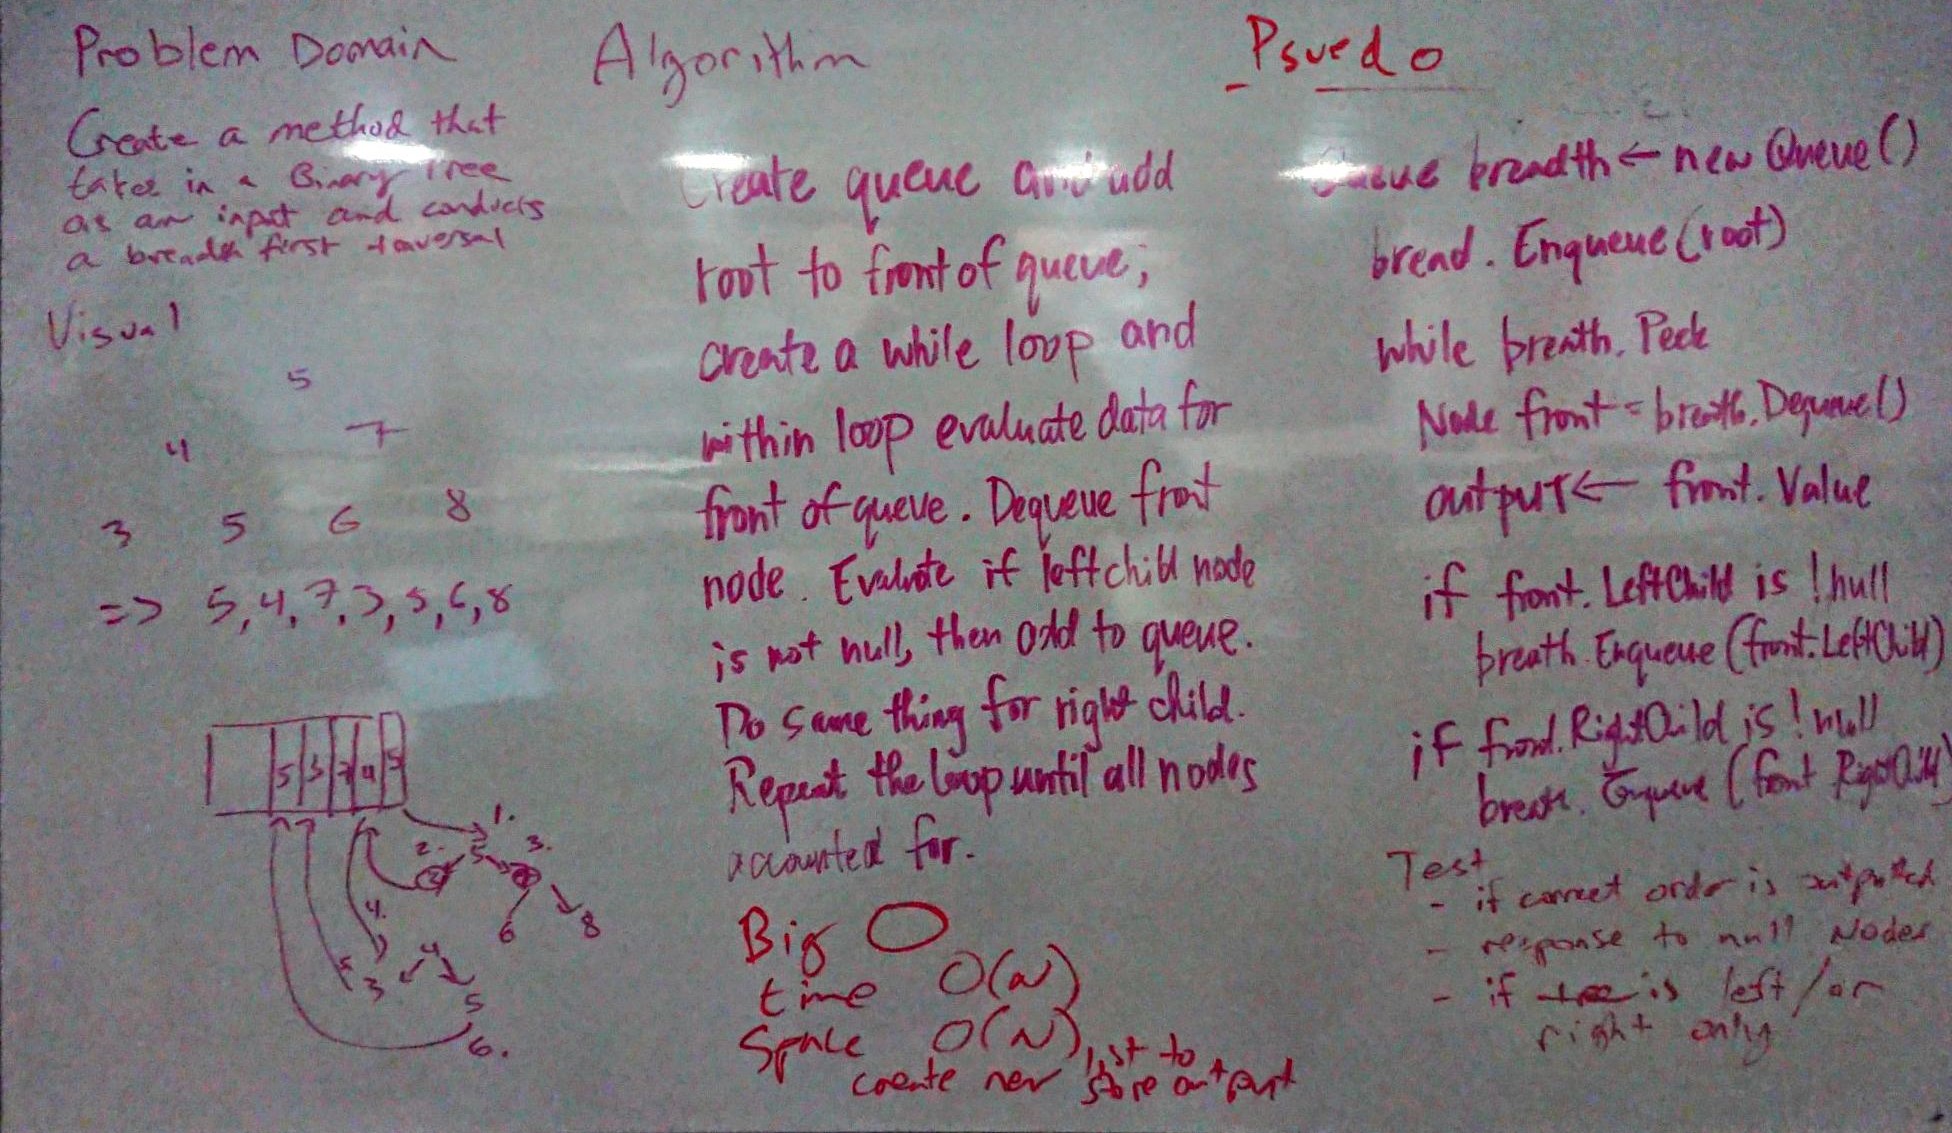 Problem Domain
Create a method that
takes in a Binary Tree
as an input and conducts
a breadth first traversal
Visual
5
4 7
3 5 6 8
=> 5,4,7,3,5,6,8
5 3 7 4 5
1.
2. 5 3.
4. 6 8
4
5 3
5
6.
Algorithm
Create queue and add
root to front of queue;
create a while loop and
within loop evaluate data for
front of queue. Dequeue front
node. Evaluate if left child node
is not null, then add to queue.
Do same thing for right child.
Repeat the loop until all nodes
accounted for.
Big O
time O(N)
Space O(N)
create new list to store output
Psuedo
Queue breadth ← new Queue()
bread. Enqueue(root)
while breath. Peek
Node front = breath. Dequeue()
output ← front. Value
if front. LeftChild is !null
breath. Enqueue (front. LeftChild)
if front. RightChild is !null
breath. Enqueue (front RightChild)
Test
- if correct order is outputted
- response to null Nodes
- if tree is left/or
right only